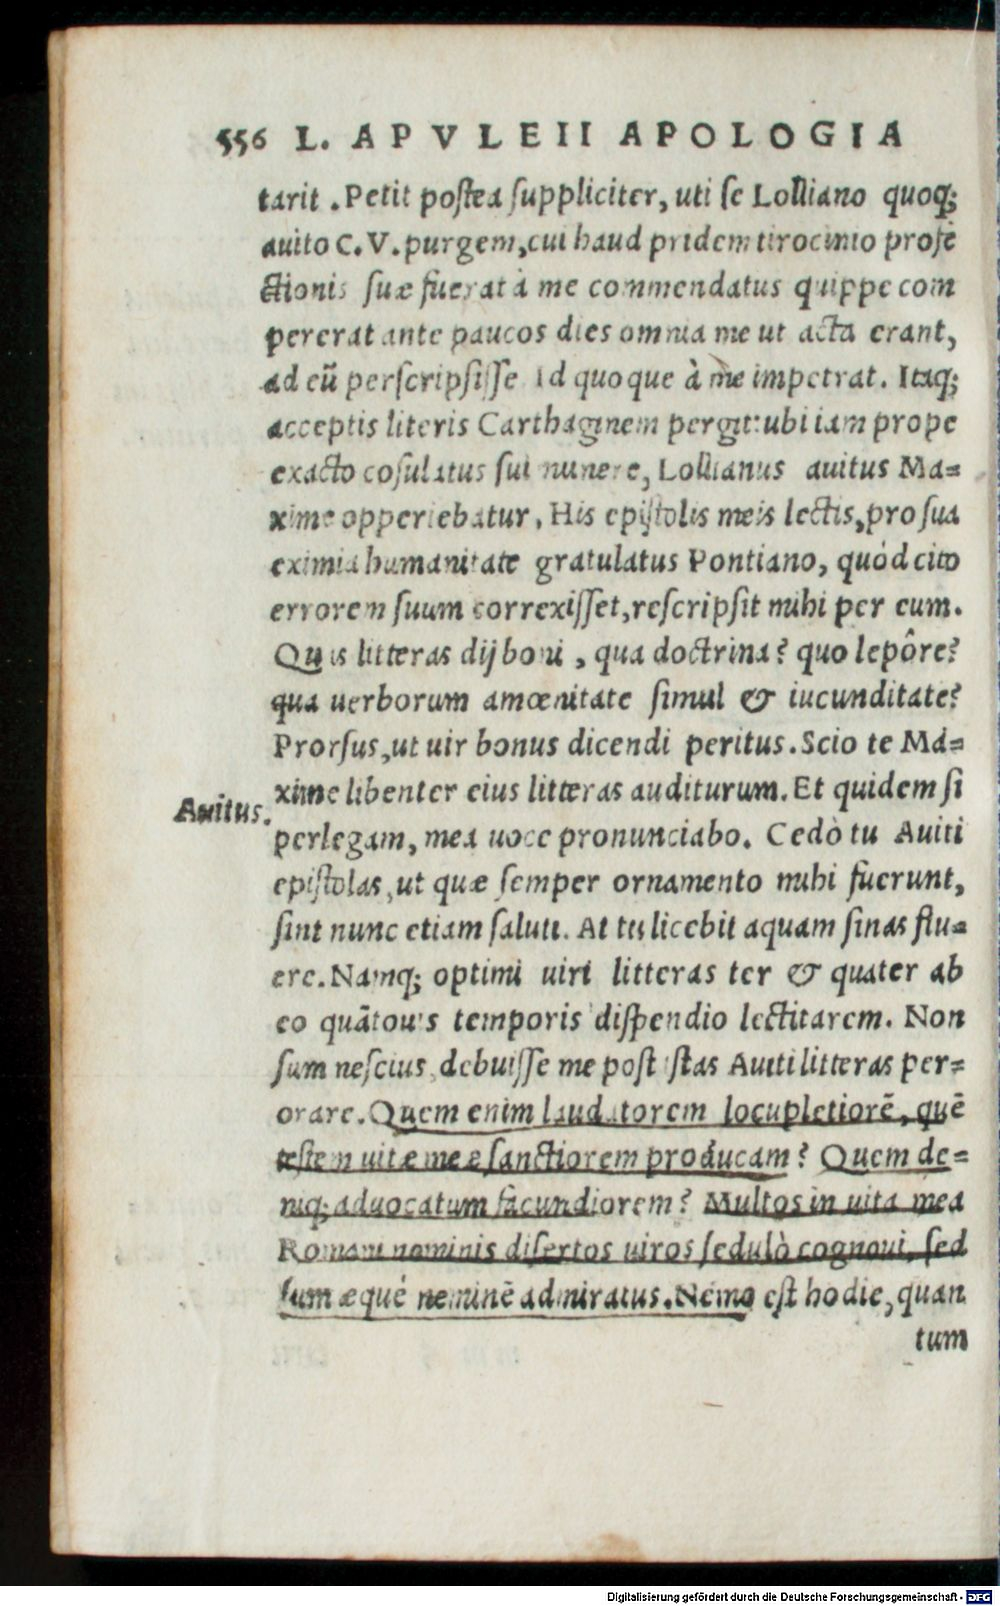 556 L. APVLEII APOLOGIA
tarit. Petit postea suppliciter, uti se Lolliano quoq;
auito C.V. purgem, cui haud pridem tirocinio profe
ctionis suæ fuerat à me commendatus quippe com
pererat ante paucos dies omnia me ut acta erant,
ad eũ perscripsisse Id quoque à me impetrat. Itaq;
acceptis literis Carthaginem pergit: ubi iam prope
exacto cosulatus sui munere, Lollianus auitus Ma=
xime opperiebatur. His epistolis meis lectis, pro sua
eximia humanitate gratulatus Pontiano, quòd cito
errorem suum correxisset, rescripsit mihi per eum.
Quis litteras dij boni, qua doctrina? quo lepôre?
qua uerborum amœnitate simul & iucunditate?
Prorsus, ut uir bonus dicendi peritus. Scio te Ma=
xime libenter eius litteras auditurum. Et quidem si
Auitus.
perlegam, mea uoce pronunciabo. Cedò tu Auiti
epistolas, ut quæ semper ornamento mihi fuerunt,
sint nunc etiam saluti. At tu licebit aquam sinas flu=
ere. Namq; optimi uiri litteras ter & quater ab
eo quãtouis temporis dispendio lectitarem. Non
sum nescius, debuisse me post istas Auiti litteras per=
orare. Quem enim laudatorem locupletiorẽ, quẽ
testem uitæ meæ sanctiorem producam? Quem de=
niq; aduocatum facundiorem? Multos in uita mea
Romani nominis disertos uiros sedulò cognoui, sed
sum æqué neminẽ admiratus. Nemo est hodie, quan
tum
Digitalisierung gefördert durch die Deutsche Forschungsgemeinschaft - DFG